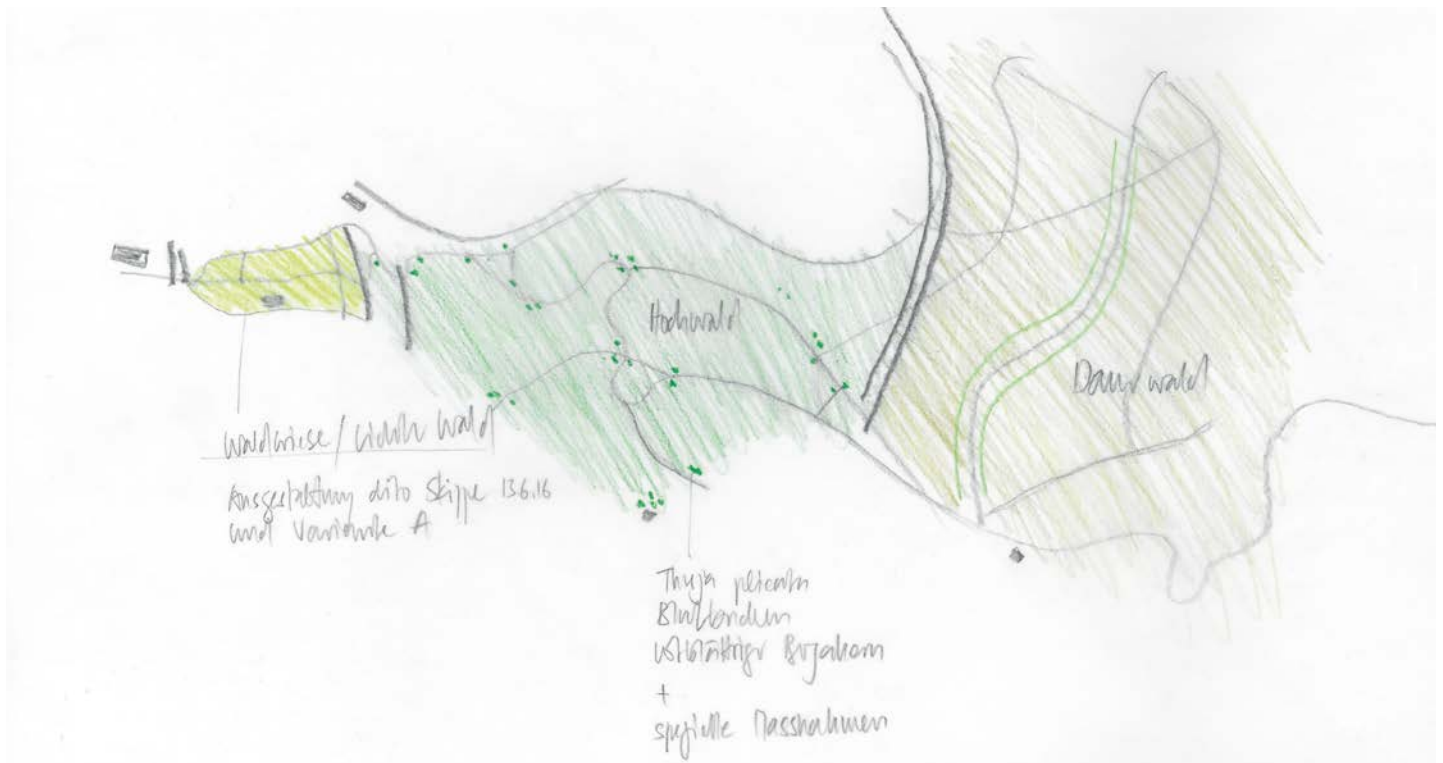 Hochwald
Dauerwald
Waldwiese / Lichter Wald
Ausgestaltung dito Skizze 13.6.16
und Variante A
Thuja plicata
Blutlinden
rotblättriger Bergahorn
+
spezielle Massnahmen